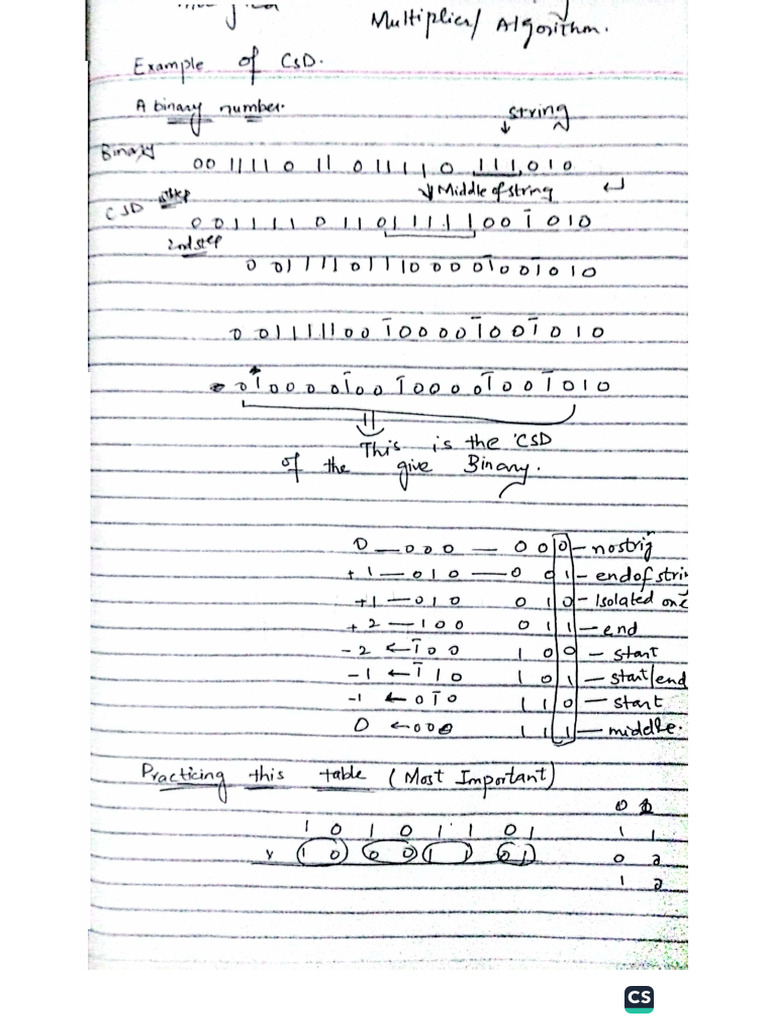 Multiplier/ Algorithm.
Example of CSD.
A binary number.
string
Binary 00 1111 0 11 0 1111 0 111,010
Middle of string
CSD step 0 0 1 1 1 1 0 1 1 0 1 1 1 1 1 0 0 1̄ 0 1 0
2nd step
0 0 1 1 1 1 0 1 1 1 0 0 0 0 1̄ 0 0 1̄ 0 1 0
0 0 1 1 1 1 1 0 0 1̄ 0 0 0 0 1̄ 0 0 1̄ 0 1 0
0 1 0 0 0 0 1̄ 0 0 1̄ 0 0 0 0 1̄ 0 0 1̄ 0 1 0
This is the CSD
of the give Binary.
0 — 0 0 0 — 0 0 0 — nostrig
+1 — 0 1 0 — 0 0 1 — end of stri
+1 — 0 1 0 0 1 0 — Isolated one
+2 — 1 0 0 0 1 1 — end
-2 ← 1̄ 0 0 1 0 0 — start
-1 ← 1̄ 1 0 1 0 1 — start/end
-1 ← 0 1̄ 0 1 1 0 — start
0 ← 0 0 0 1 1 1 — middle.
Practicing this table (Most Important)
1 0 1 0 1 1 0 1 1 1
x 1 0 0 0 1 1 0 1 0 2
1 2
CS